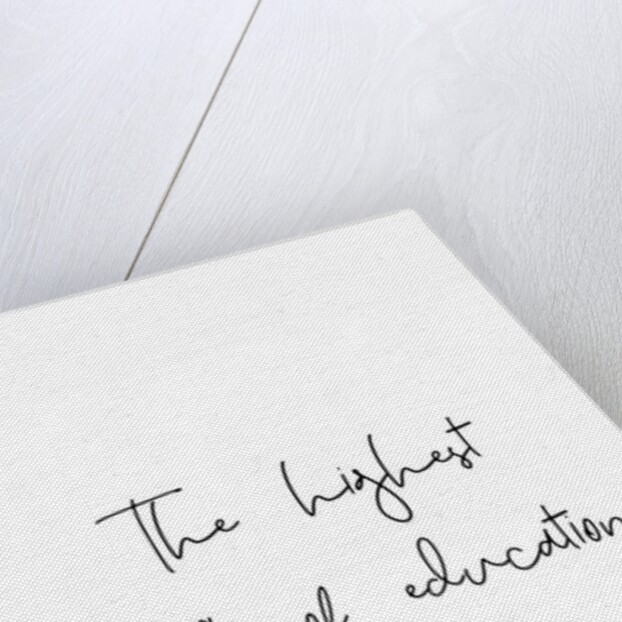 The highest
of education